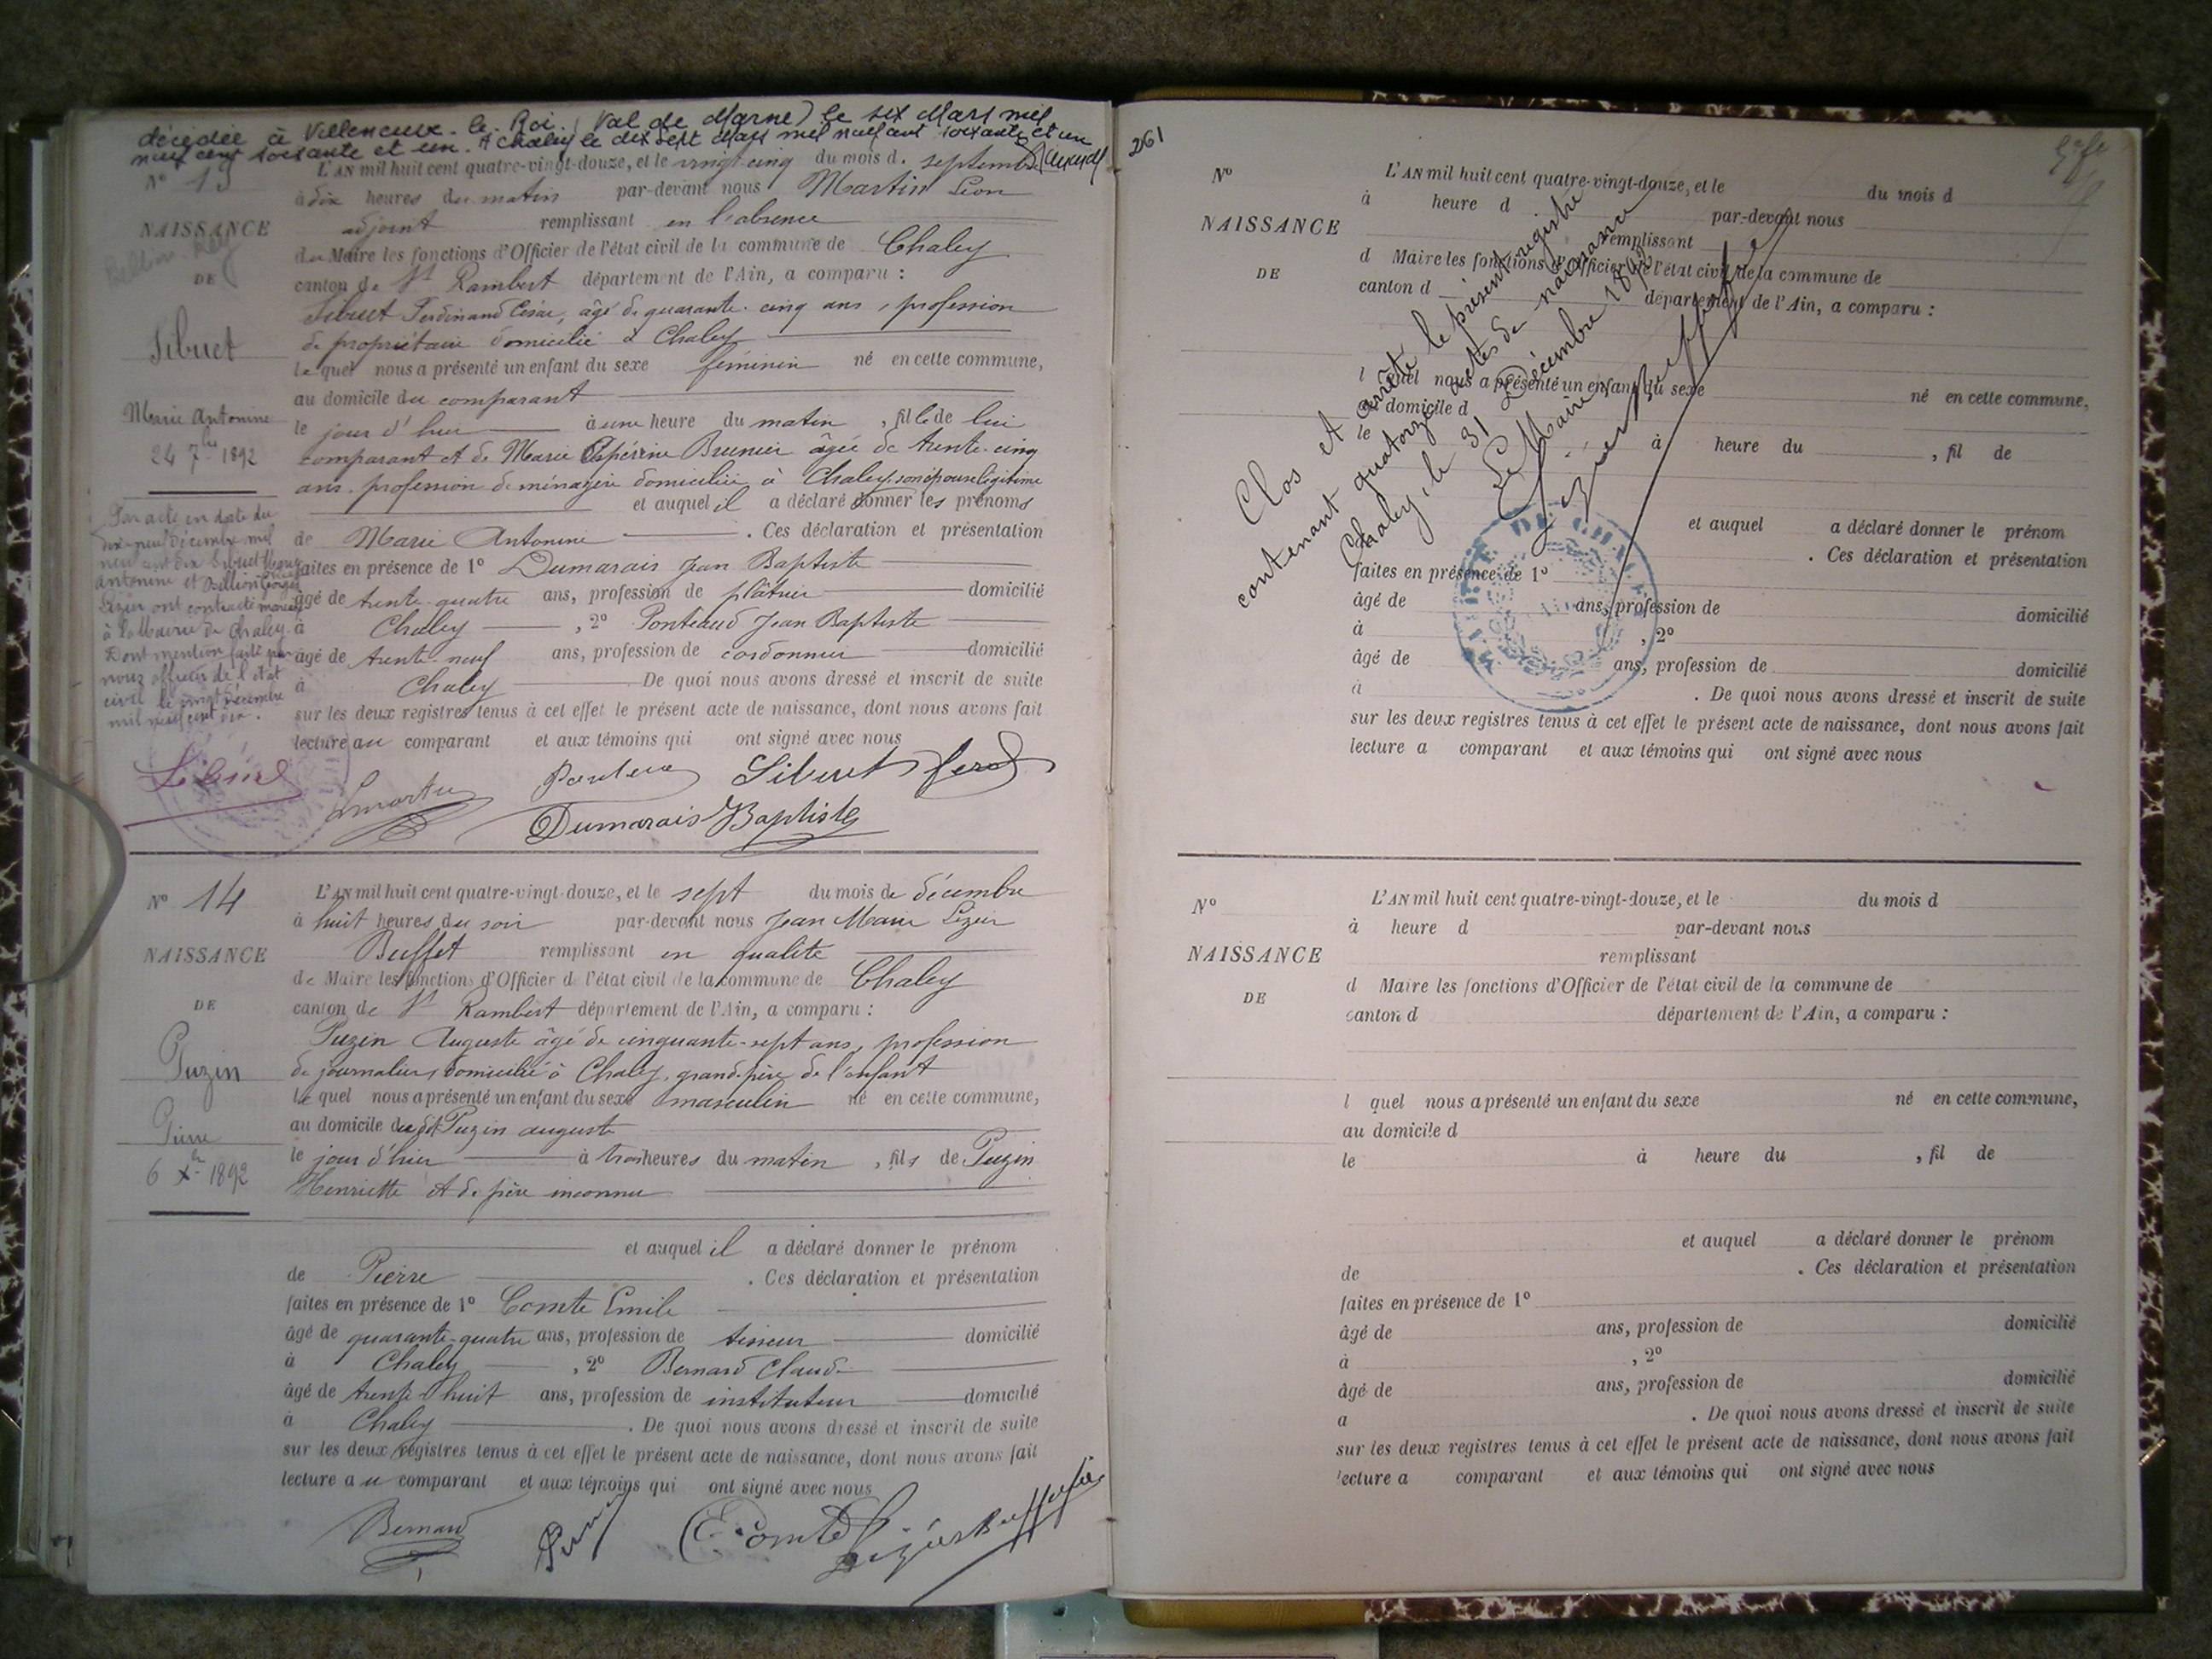 décédée à Villeneuve-le-Roi (Val de Marne) le six Mars mil
neuf cent soixante et un. A Chaley le dix sept Mars mil neuf cent soixante et un
N° 13
L'AN mil huit cent quatre-vingt-douze, et le vingt-cinq du mois d. septembre
à dix heures du matin par-devant nous Martin Léon
NAISSANCE
adjoint remplissant en l'absence
du Maire les fonctions d'Officier de l'état civil de la commune de Chaley
DE
canton de St Rambert département de l'Ain, a comparu :
Sibuet Ferdinand César, âgé de quarante-cinq ans, profession
Sibuet
de propriétaire domicilié à Chaley
lequel nous a présenté un enfant du sexe féminin né en cette commune,
au domicile du comparant
Marie Antonine
24 7bre 1892
le jour d'hier à une heure du matin, fille de lui
comparant et de Marie Brunier âgée de trente-cinq
ans, profession de ménagère domiciliée à Chaley, son épouse légitime
et auquel il a déclaré donner les prénoms
de Marie Antonine. Ces déclaration et présentation
faites en présence de 1° Dumarais Jean Baptiste
âgé de trente-quatre ans, profession de plâtrier domicilié
à Chaley, 2° Ponteaud Jean Baptiste
âgé de trente-neuf ans, profession de cordonnier domicilié
à Chaley De quoi nous avons dressé et inscrit de suite
sur les deux registres tenus à cet effet le présent acte de naissance, dont nous avons fait
lecture au comparant et aux témoins qui ont signé avec nous
Par acte en date du
dix-neuf décembre mil
neuf cent dix Sibuet Marie
Antonine et Georges
Lézin ont contracté mariage
à la Mairie de Chaley
Dont mention faite par
nous officier de l'état
civil le vingt décembre
mil neuf cent dix.
Sibuet ferd
Dumarais Baptiste
N° 14
L'AN mil huit cent quatre-vingt-douze, et le sept du mois de décembre
à huit heures du soir par-devant nous Jean Marie Lézin
NAISSANCE
Buffet remplissant en qualité
de Maire les fonctions d'Officier d l'état civil de la commune de Chaley
DE
canton de St Rambert département de l'Ain, a comparu :
Puzin Auguste âgé de cinquante-sept ans, profession
Puzin
de journalier, domicilié à Chaley, grand-père de l'enfant
lequel nous a présenté un enfant du sexe masculin né en cette commune,
Pierre
au domicile dudit Puzin auguste
6 Xbre 1892
le jour d'hier à trois heures du matin, fils de Puzin
Henriette et de père inconnu
et auquel il a déclaré donner le prénom
de Pierre. Ces déclaration et présentation
faites en présence de 1° Comte Emile
âgé de quarante-quatre ans, profession de tisseur domicilié
à Chaley, 2° Bernard Claude
âgé de trente-huit ans, profession de instituteur domicilié
à Chaley. De quoi nous avons dressé et inscrit de suite
sur les deux registres tenus à cet effet le présent acte de naissance, dont nous avons fait
lecture au comparant et aux témoins qui ont signé avec nous
Bernard
E. Comte
261
N°
L'AN mil huit cent quatre-vingt-douze, et le du mois d
à heure d par-devant nous
NAISSANCE
remplissant
d Maire les fonctions d'Officier de l'état civil de la commune de
DE
canton d département de l'Ain, a comparu :
l quel nous a présenté un enfant du sexe né en cette commune,
au domicile d
le à heure du , fil de
et auquel a déclaré donner le prénom
. Ces déclaration et présentation
faites en présence de 1°
âgé de ans, profession de domicilié
à , 2°
âgé de ans, profession de domicilié
à . De quoi nous avons dressé et inscrit de suite
sur les deux registres tenus à cet effet le présent acte de naissance, dont nous avons fait
lecture a comparant et aux témoins qui ont signé avec nous
Clos et arrêté le présent registre
contenant quatorze actes de naissance
Chaley, le 31 Décembre 1892
Le Maire
N°
L'AN mil huit cent quatre-vingt-douze, et le du mois d
à heure d par-devant nous
NAISSANCE
remplissant
DE
d Maire les fonctions d'Officier de l'état civil de la commune de
canton d département de l'Ain, a comparu :
l quel nous a présenté un enfant du sexe né en cette commune,
au domicile d
le à heure du , fil de
et auquel a déclaré donner le prénom
de . Ces déclaration et présentation
faites en présence de 1°
âgé de ans, profession de domicilié
à , 2°
âgé de ans, profession de domicilié
a . De quoi nous avons dressé et inscrit de suite
sur les deux registres tenus à cet effet le présent acte de naissance, dont nous avons fait
lecture a comparant et aux témoins qui ont signé avec nous